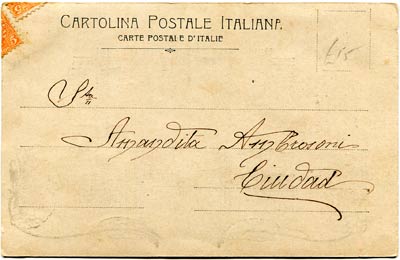 CARTOLINA POSTALE ITALIANA
CARTE POSTALE D'ITALIE
£15
Sta
Amandita Ambrosoni
Ciudad